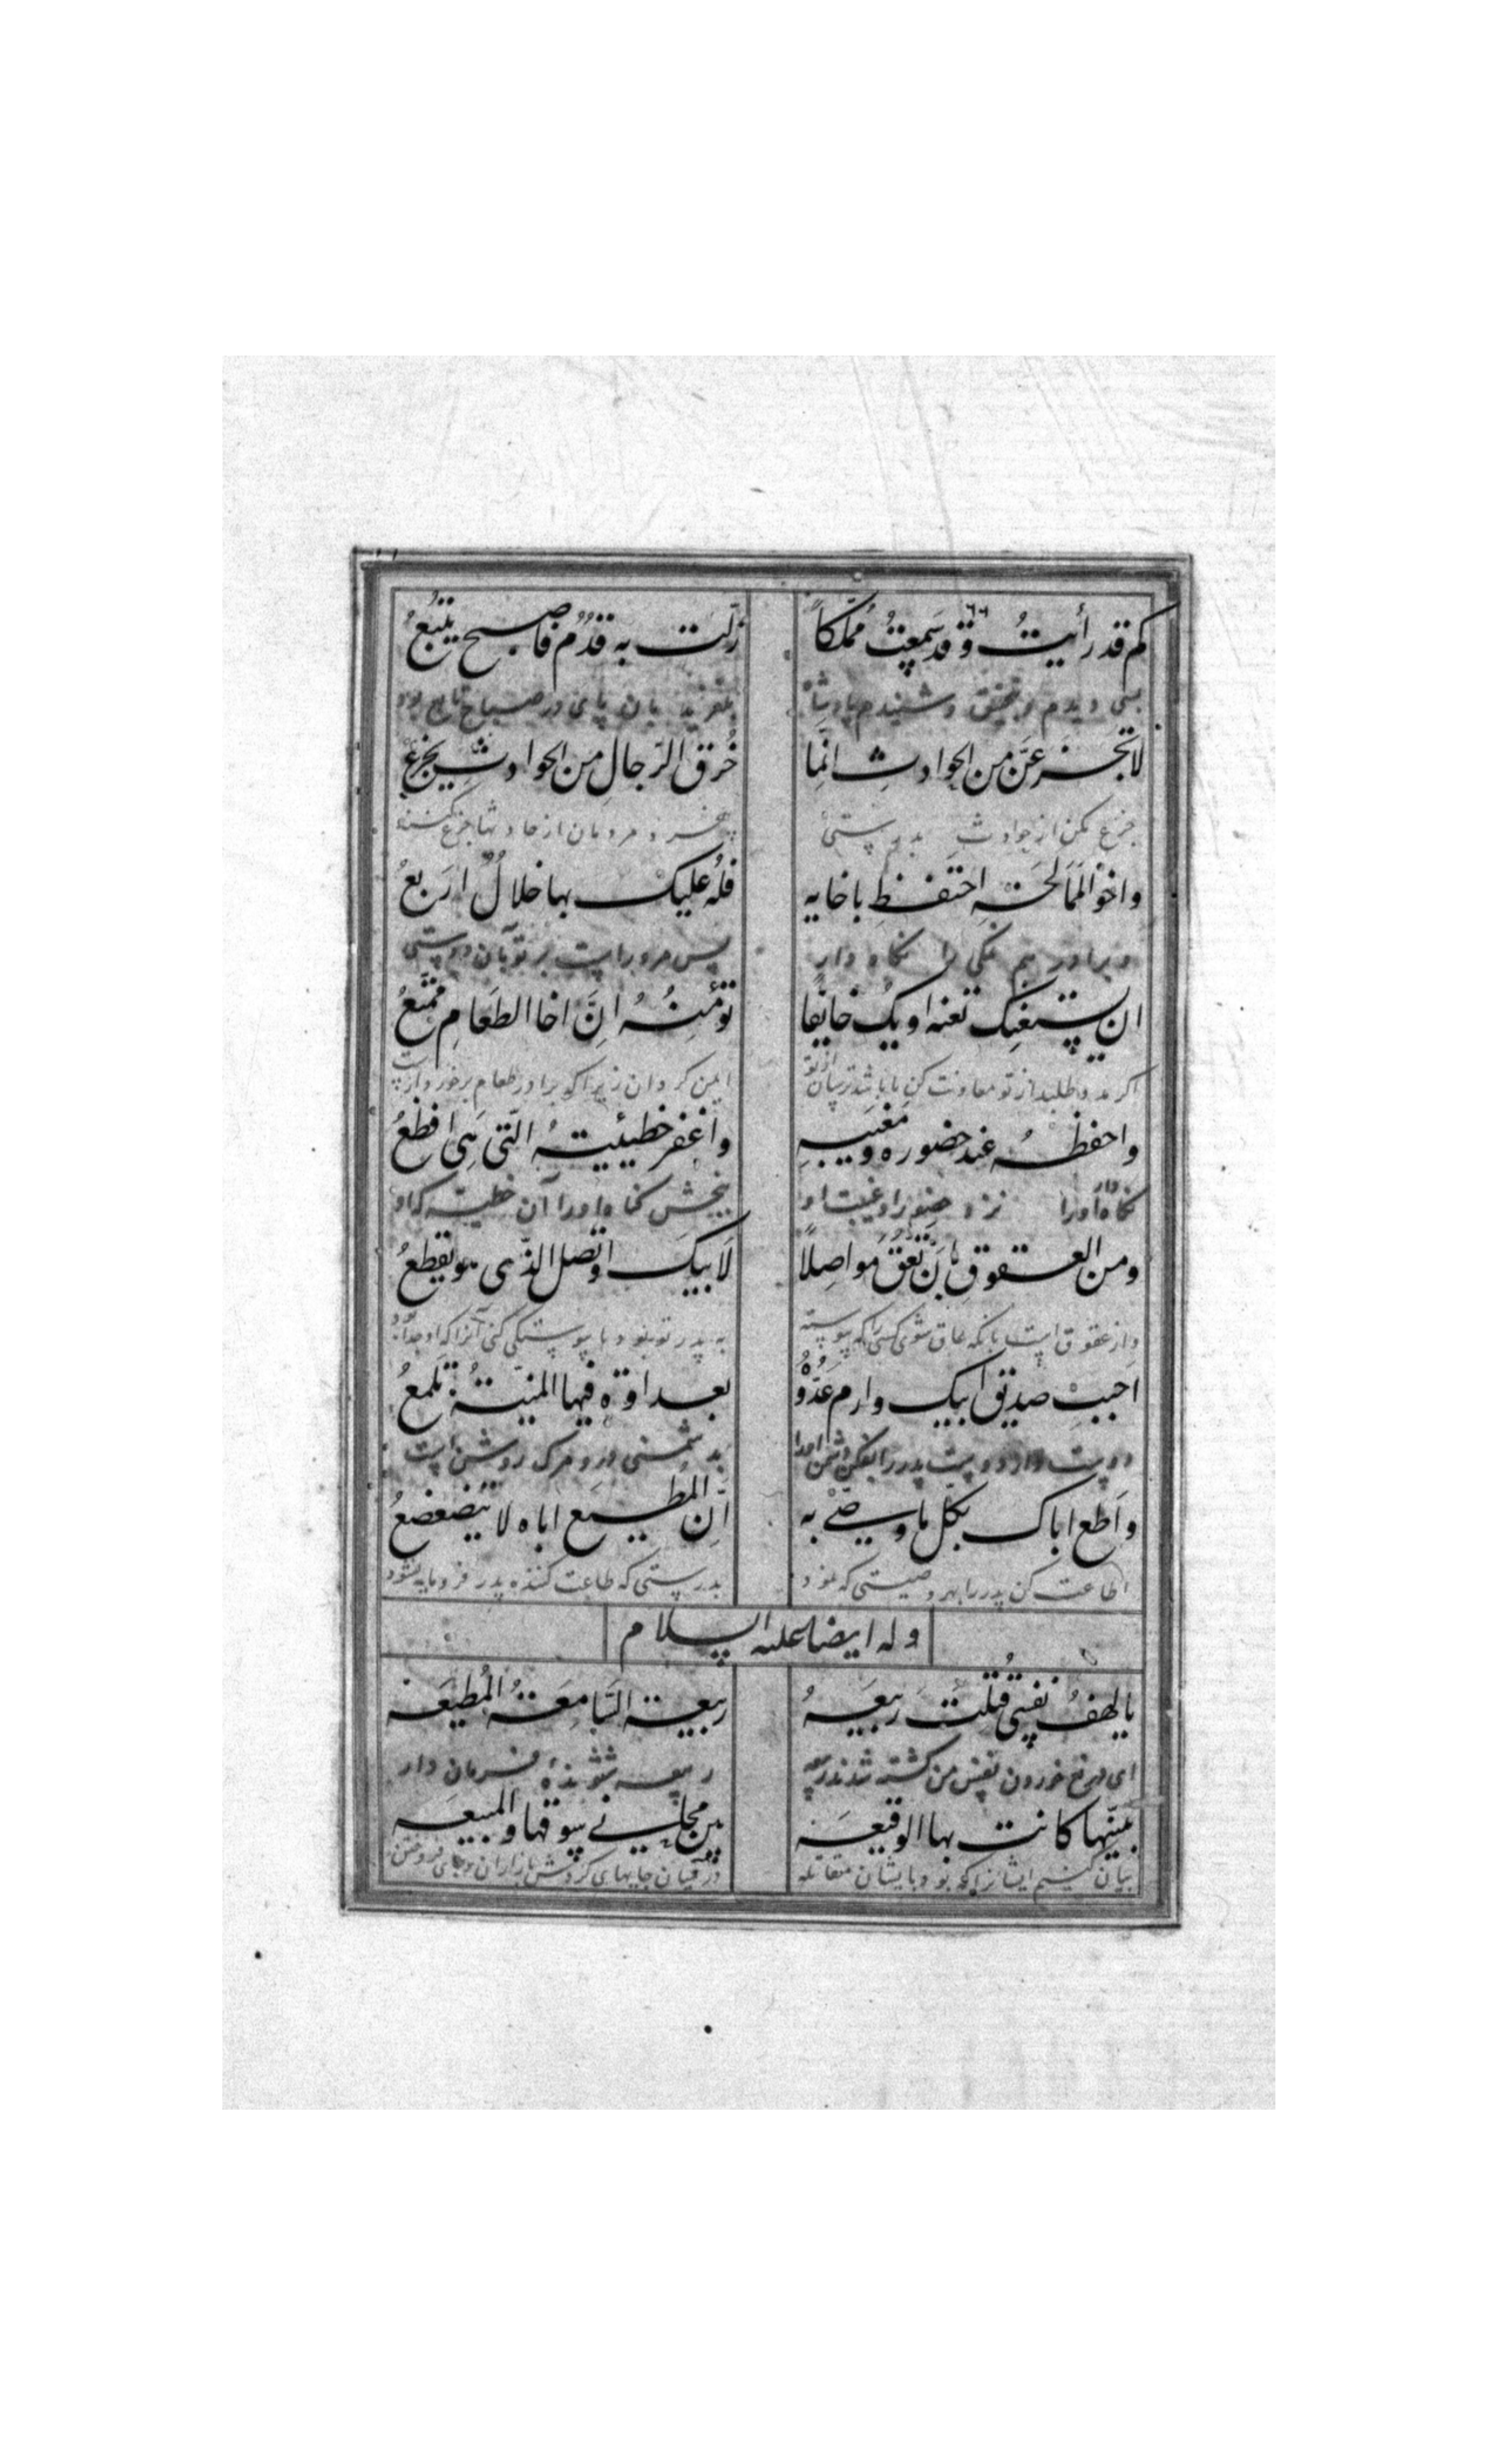 كم قد رأيتُ وقد سمعتُ مُملّكاً زلّت به قدُمٌ فاصبح يتبعُ
بسی دیدم و بتحقیق و شنیدم پادشاه بلغزید بآن پای در صباح تابع بود
لا تجزعنّ من الحوادث انّما خُرق الرّجالِ من الحوادث يجزعُ
جزع مکن از حوادث بدرستی مردمان از حادثها جزع کنند
واخو الممالحة احتفظِ باخايه فلهُ عليك بها خلالٌ اربعُ
و برادر هم نمکی را نگاه دار پس مرو راست بر تو بآن دوستی
ان يستعنك تعنه او يك خايفا تؤمنُهُ انّ اخا الطعامِ ممتّعُ
اگر مدد طلبد از تو معاونت کن یا باشد ترسان از تو ایمن گردان زیرا که برادر طعام برخوردارست
واحفظهُ عند حضوره ومغيبهِ واغفر خطيئيتهُ الّتى هى افظعُ
نگاه دار اورا نزد حضور او و غیبت او ببخش گناه اورا آن خطیئه که او
ومن العقوق بان تعقّ مواصلاً لابيك او تصل الذى هو يقطعُ
و از عقوق است بآنکه عاق شوی کسی را که پیوسته به پدر تو بود یا پیوستگی کنی آنرا که او جدا بود
احبب صديق ابيك وارم عدُوّهُ بعداوة فيها المنيّةُ تلمعُ
دوست دار دوست پدر را بفکن دشمن اورا بدشمنی درو مرگ روشن است
واطع اباك بكل ما وصى به انّ المُطيع اباه لا يتضعضعُ
اطاعت کن پدر را بهر وصیتی که نمود بدرستی که طاعت کننده پدر فرومایه نشود
وله ايضا عليه السلام
يا لهفُ نفسى قُتلت ربيعهُ ربيعة السّامعةُ المُطيعة
ای دریغ خوردن نفس من کشته شدند ربیعه ربیعه شنونده فرمان دار
بيّنها كانت بها الوقيعة بين محلى سوقها والمبيعة
بیان کنیم ایشانرا که بود بایشان مقاتله در میان جایهای گردش بازاران و جای فروختن